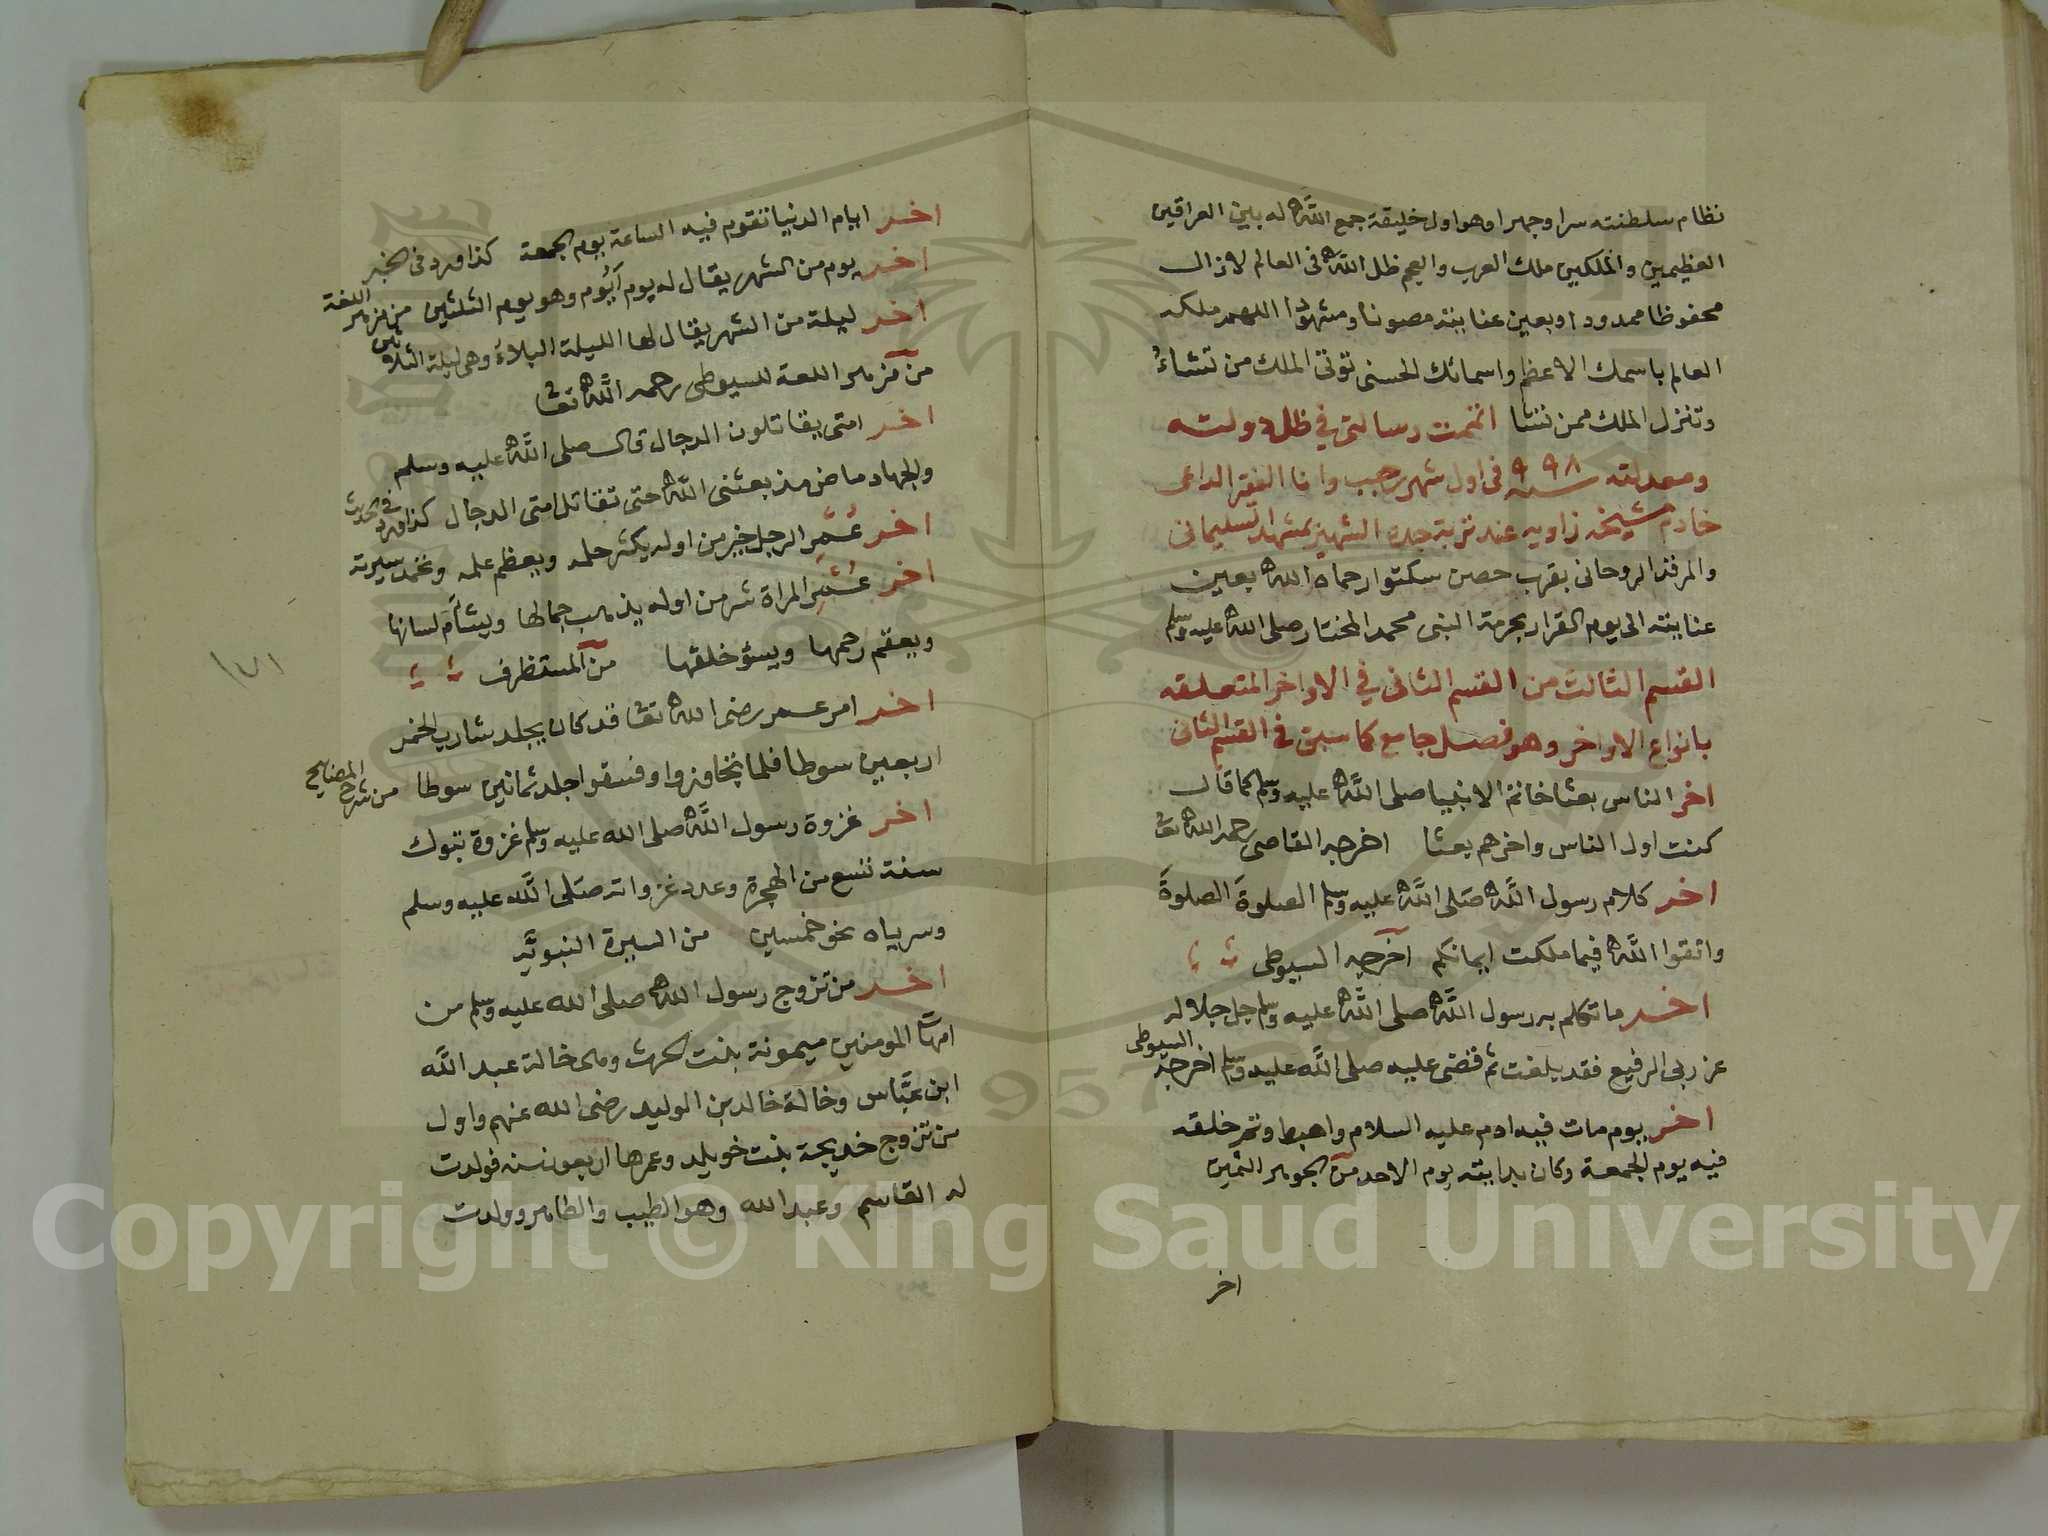 نظام سلطنته سرا وجهرا وهو اول خليفة جمع الله له بين العراقين
العظيمين والملكين ملك العرب والعجم ظل الله فى العالم لا زال
محفوظا ممدودا وبعين عنايته مصونا ومشهودا اللهم ملكه
العالم باسمك الاعظم واسمائك الحسنى تؤتى الملك من تشاءُ
وتنزل الملك ممن تشا اتممت رسالتى في ظل دولته
ومعدلته سنه ٩٩٨ فى اول شهر رجب وانا الفقير الداعى
خادم مشيخه زاويه عند تربة جده الشهير بمشهد السليمانى
والمرقد الروحانى بقرب حصن سكتوار حماه الله بعين
عنايته الى يوم القرار بحرمة النبى محمد المختار صلى الله عليه وسلم
القسم الثالث من القسم الثانى في الاواخر المتعلقه
بانواع الاواخر وهو فصل جامع كما سبق فى القسم الثانى
اخر الناس بعثا خاتم الانبيا صلى الله عليه وسلم كما قال
كنت اول الناس واخرهم بعثا اخرجه القاضى رحمه الله تعا
اخر كلام رسول الله صَلى الله عليه وسلم الصلوةَ الصلوةَ
واتقوا الله فيما ملكت ايمانكم اخرجه السيوطى
اخر ما تكلم به رسول الله صلى الله عليه وسلم جل جلاله
عز ربى الرفيع فقد بلغت ثم قضى عليه صلى الله عليه وسلم اخرجه السيوطى
اخر يوم مات فيه ادم عليه السلام واهبط وتم خلقه
فيه يوم الجمعة وكان بدايته يوم الاحد من الجوهر الثمين
اخر
اخر ايام الدنيا تقوم فيه الساعة يوم الجمعة كذا ورد فى الخبر
اخر يوم من الشهر يقال له يوم اَيْوُم وهو يوم الثلثين من مزهر اللغة
اخر ليلة من الشهر يقال لها الليلة الليلاء وهى ليلة الثلاثين
من مزهر اللغة للسيوطى رحمه الله تعا
اخر امتى يقاتلون الدجال قال صلى الله عليه وسلم
والجهاد ماض مذ بعثنى الله حتى تقاتل امتى الدجال كذا ورد فى الحديث
اخر عُمُرِ الرجل خير من اوله يكثر حلمه ويعظم علمه وتحمد سيرته
اخر عُمُرِ المراة شر من اوله يذهب جمالها ويشأم لسانها
ويعقم رحمها ويسؤ خلقها من المستظرف
اخر امر عمر رضى الله تعا قد كان يجلد شارب الخمر
اربعين سوطا فلما تجاوزوا وفسقوا جلد ثمانين سوطا من شرح المصابيح
اخر غزوة رسول الله صلى الله عليه وسلم غزوة تبوك
سنة تسع من الهجرة وعدد غزواته صَلى الله عليه وسلم
وسرياه نحو خمسين من السيرة النبويَّة
اخر من تزوج رسول الله صلى الله عليه وسلم من
امهات المومنين ميمونة بنت الحرث وهى خالة عبد الله
ابن عبَّاس وخالة خالد بن الوليد رضى الله عنهم واول
من تزوج خديجة بنت خويلد وعمرها اربعون سنه فولدت
له القاسم وعبد الله وهو الطيب والطاهر وولدت
١٧١
Copyright © King Saud University
1957